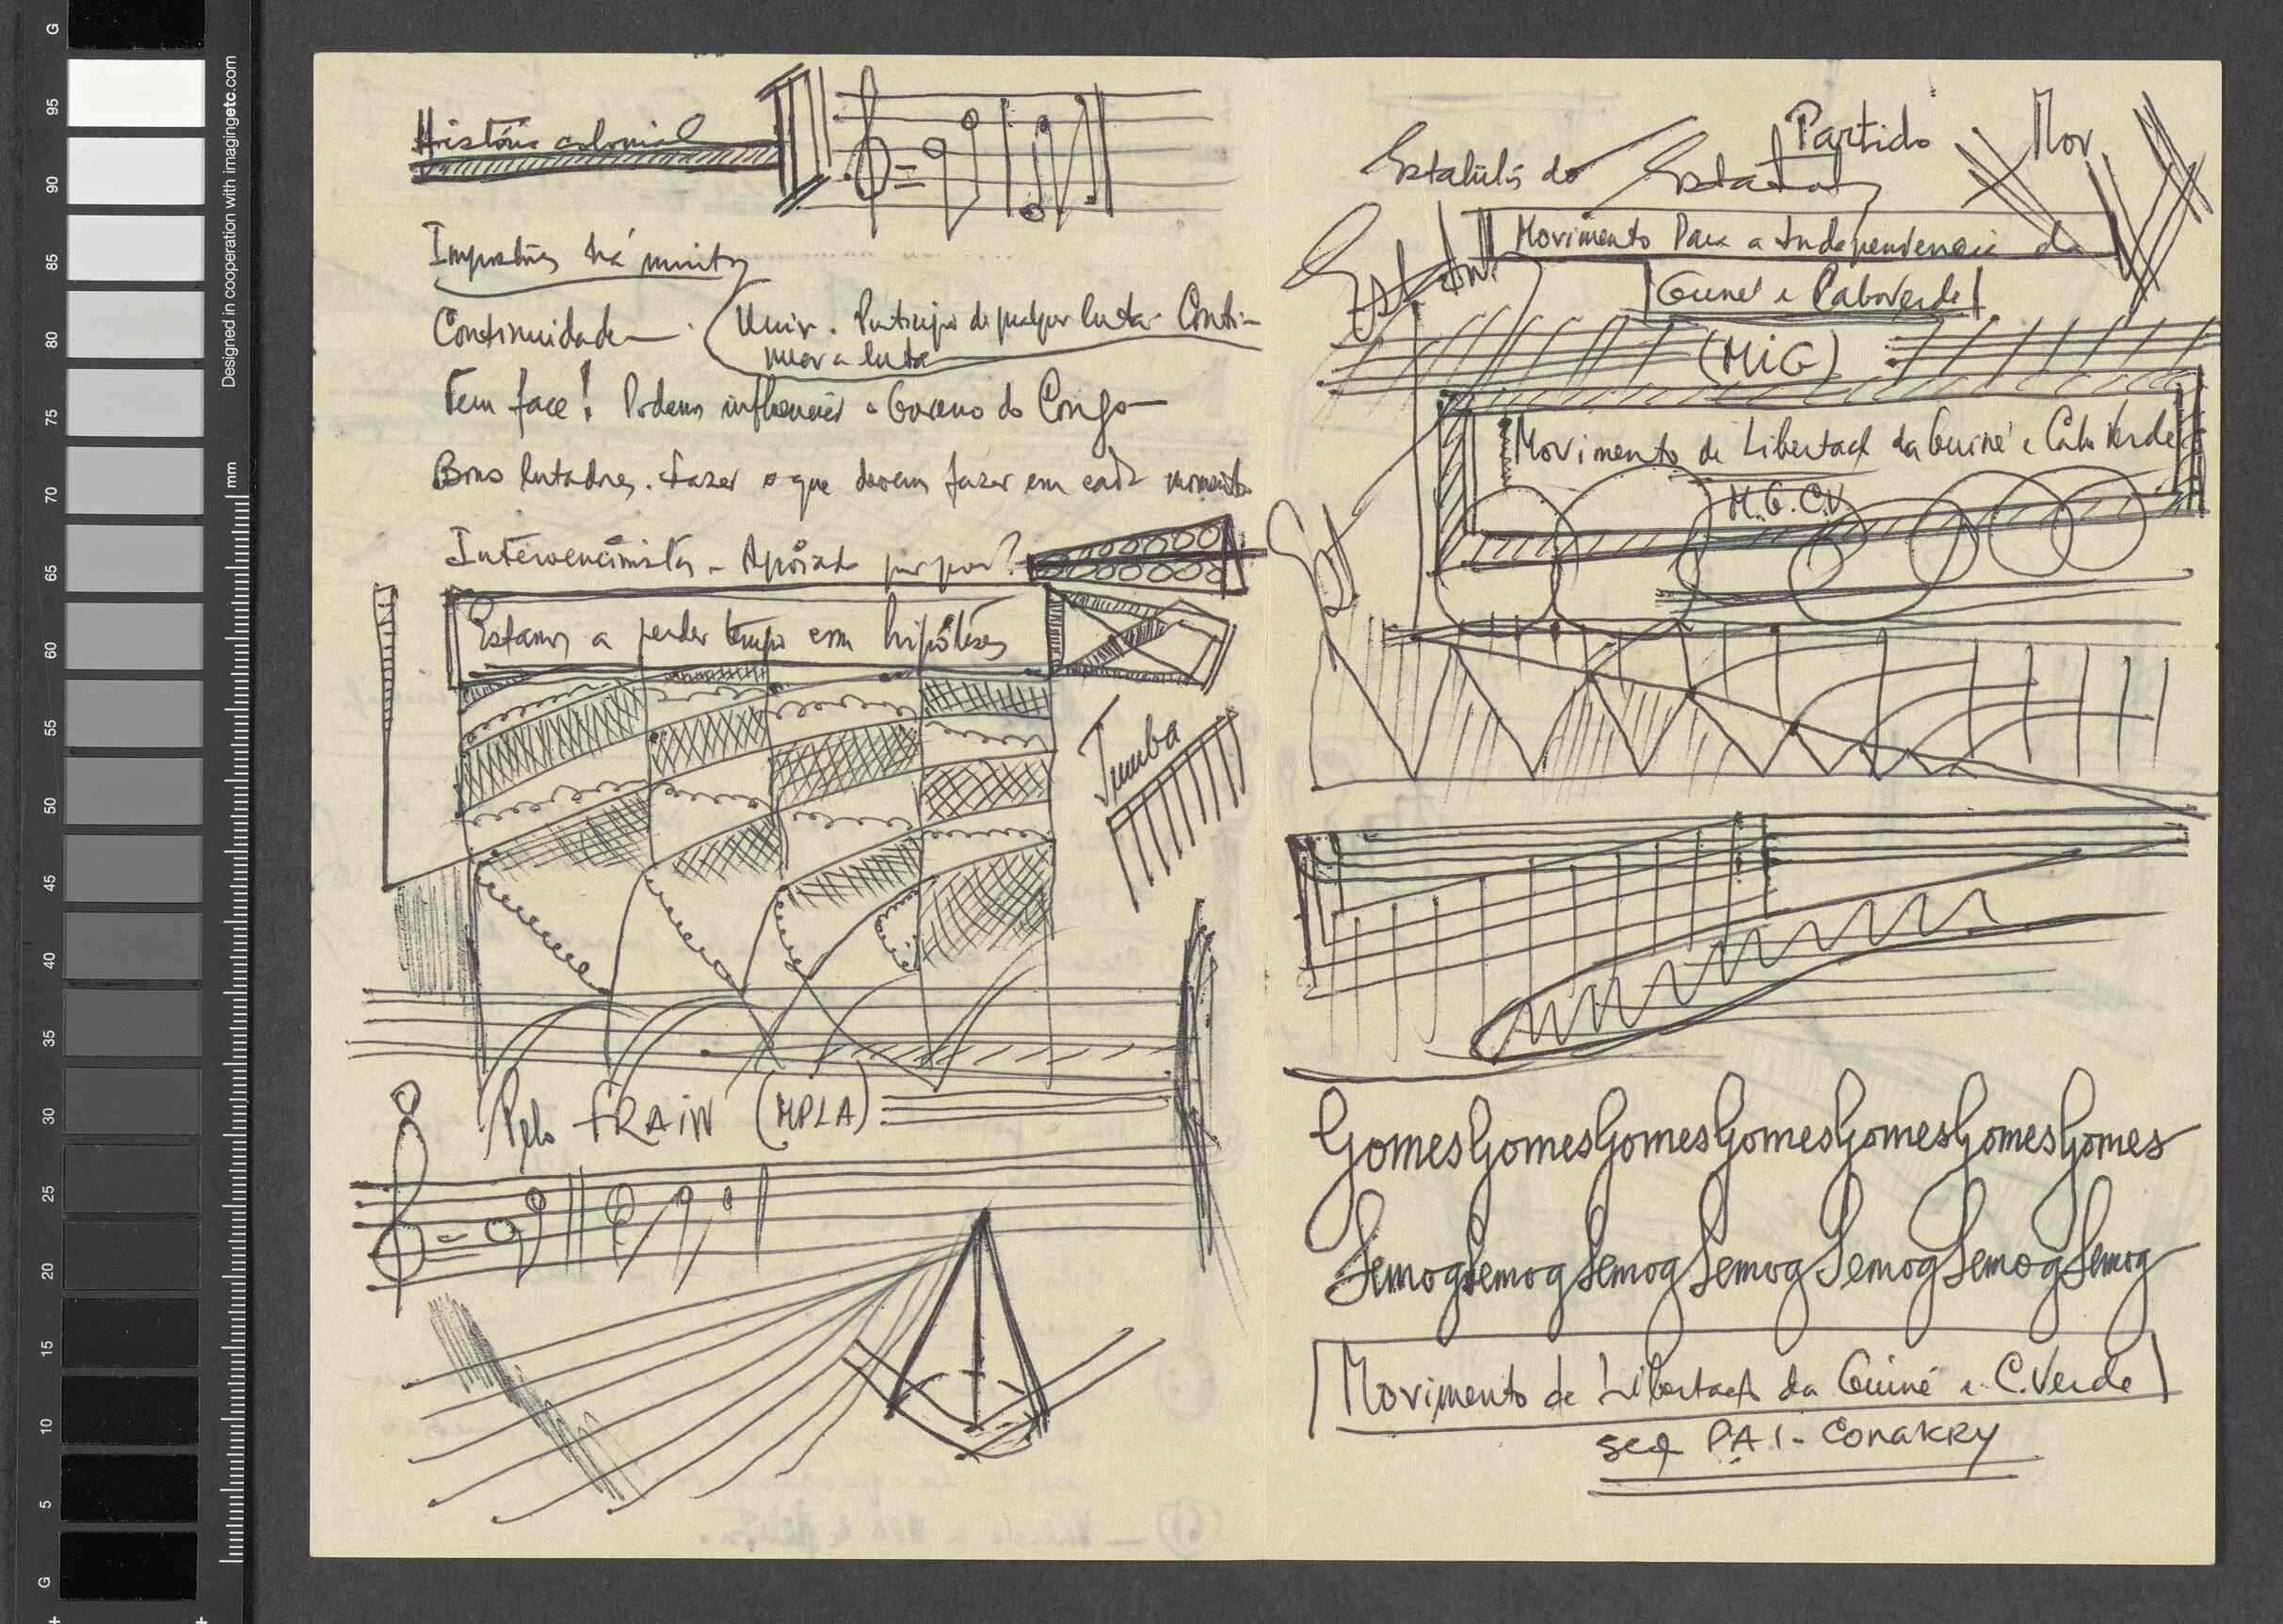 História colonial
Impostores há muitos
Continuidade - Unir. Participar de qualquer luta - Conti-
nuar a luta
Tem face! Podem influenciar o Governo do Congo -
Bons lutadores. Fazer o que devem fazer em cada momento
Intervencionistas - Apoiado por
Estamos a perder tempo com hipóteses
Tumba
Pelo FRAIN (MPLA)
Partido Mov
do
Est
Movimento Para a Independencia da
Guiné e CaboVerde
(MiG)
Movimento de Libertaç da Guiné e Cabo Verde
M.G.C.V
Est
GomesGomesGomesGomesGomesGomesGomes
SemogSemogSemogSemogSemogSemogSemog
Movimento de Libertaç da Guiné e C.Verde
PAI - Conakry
Designed in cooperation with imagingetc.com
mm
G
95
90
85
80
75
70
65
60
55
50
45
40
35
30
25
20
15
10
5
G